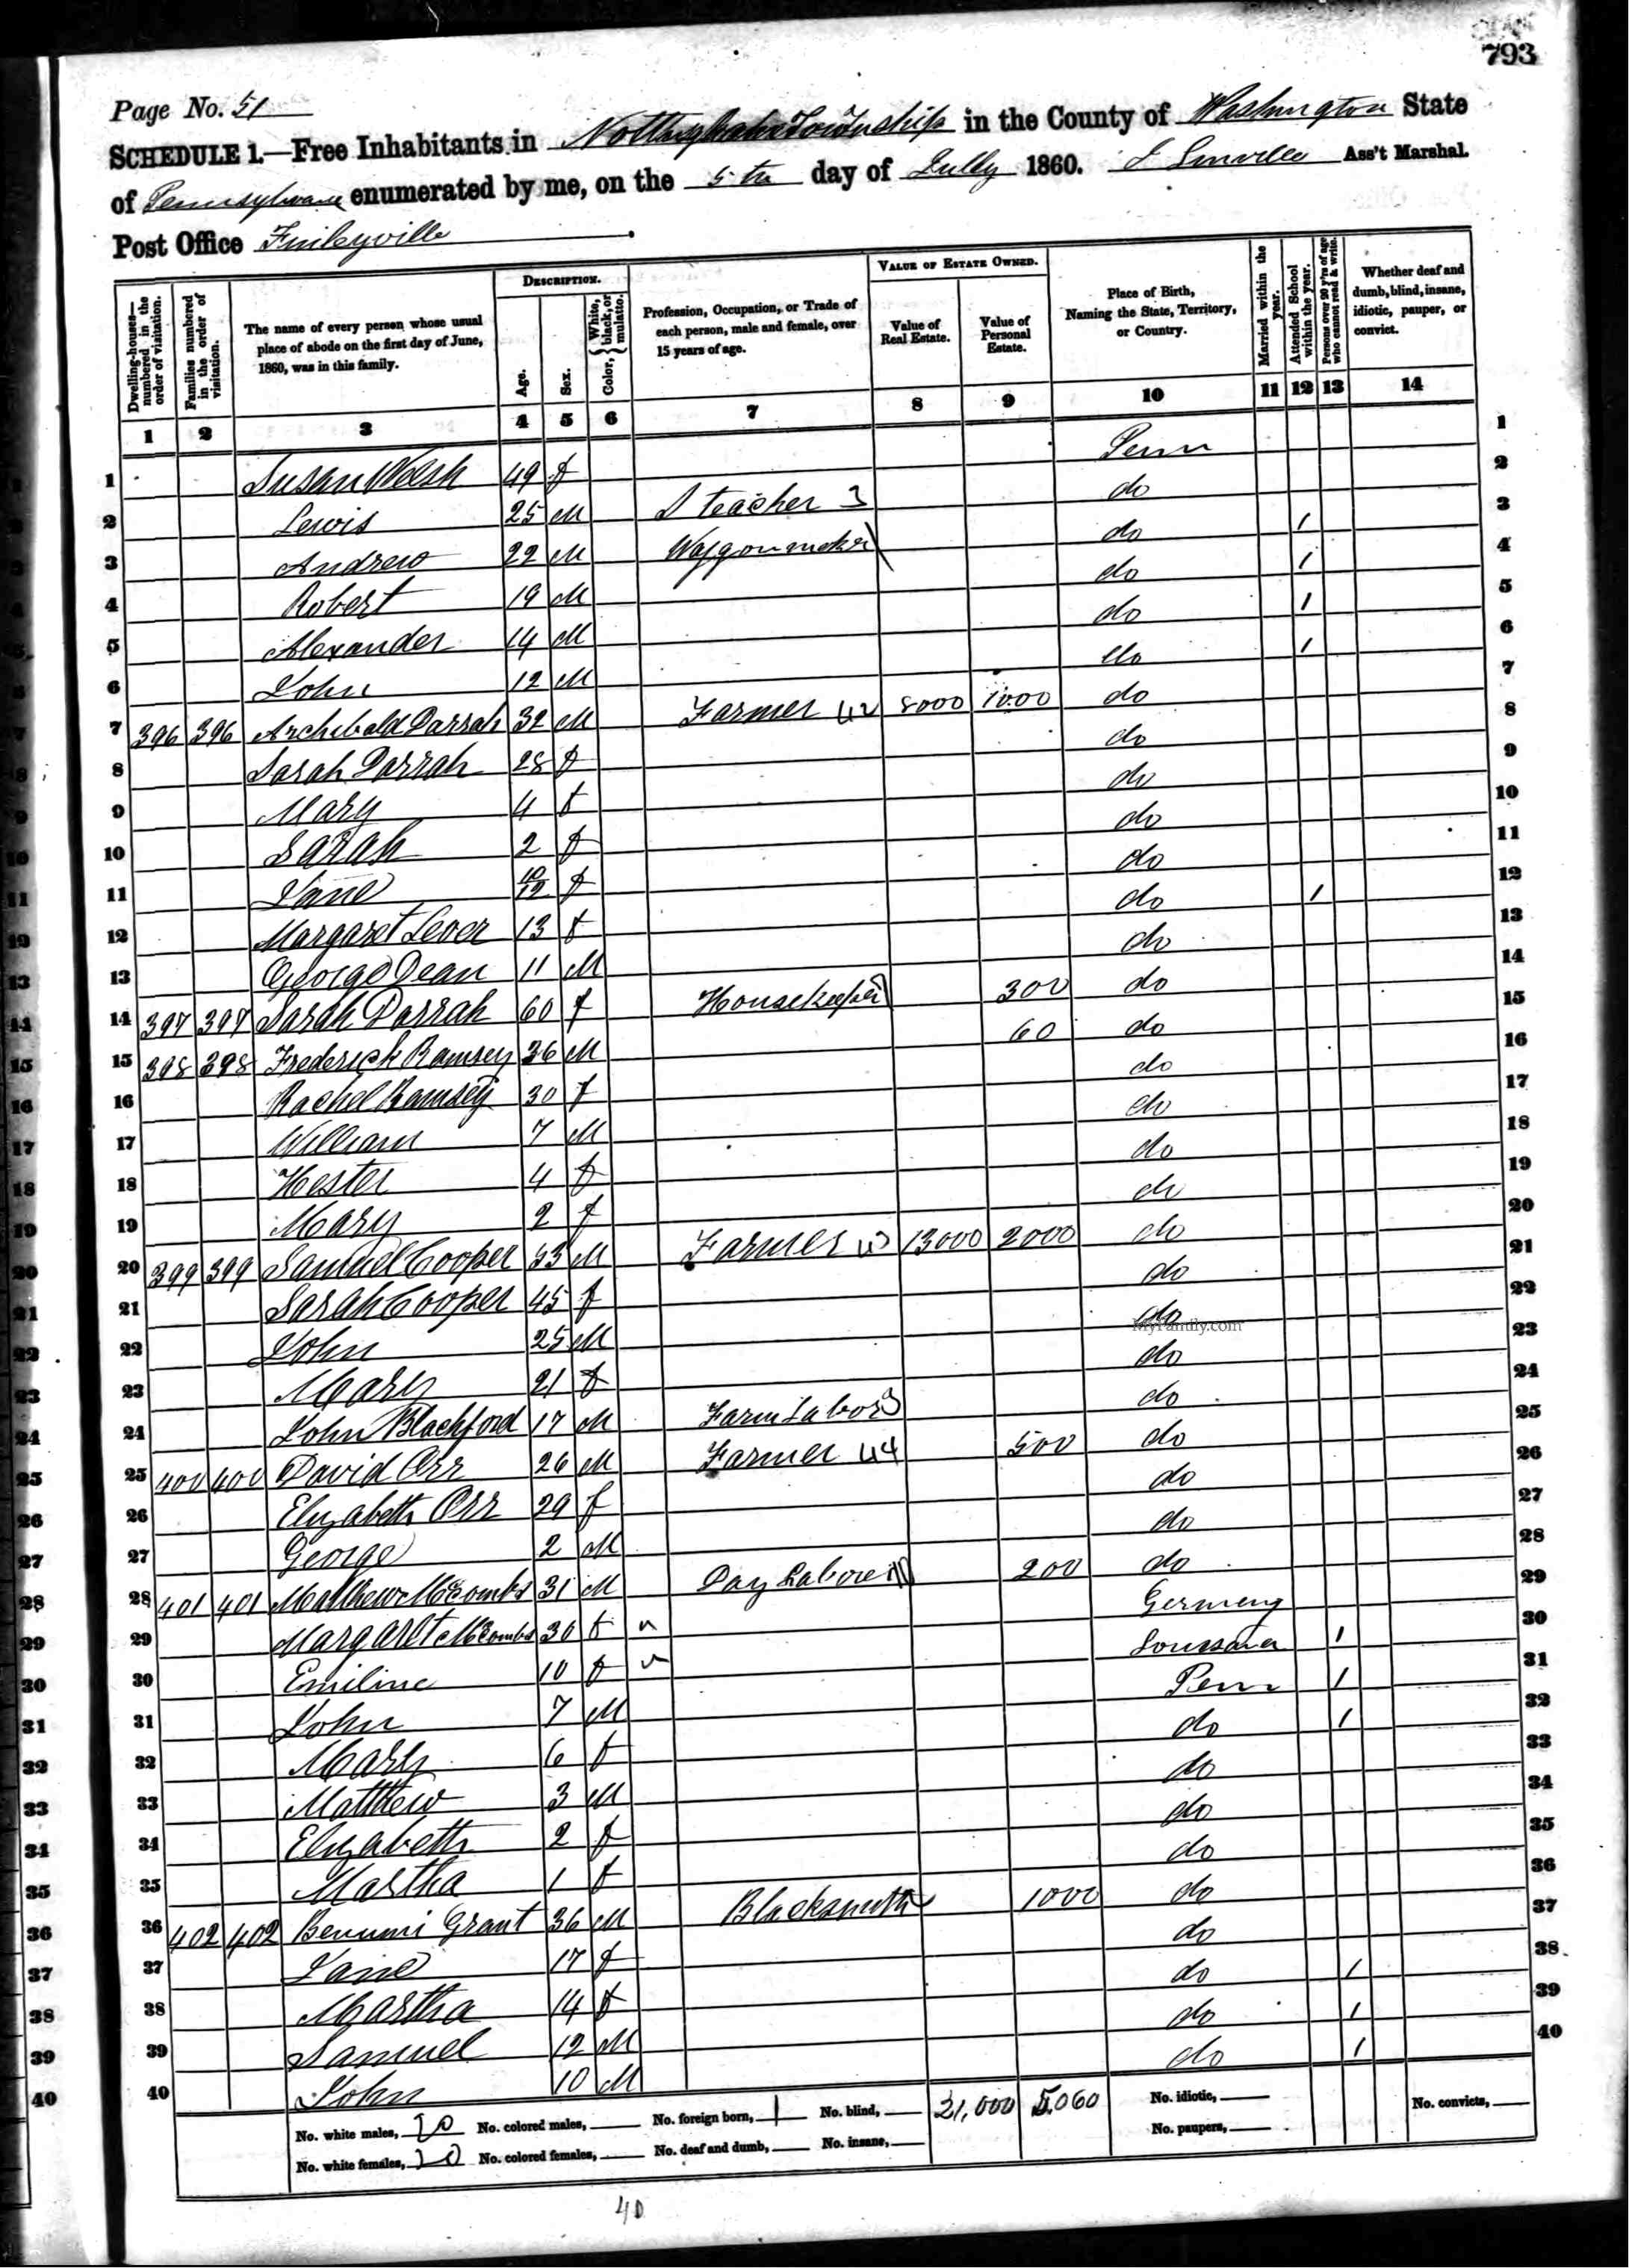 793
Page No. 51
SCHEDULE 1.—Free Inhabitants in Nottingham Township in the County of Washington State
of Pennsylvania enumerated by me, on the 5th day of Jully 1860. J Linville Ass't Marshal.
Post Office Finleyville
Dwelling-houses—numbered in the order of visitation.
Families numbered in the order of visitation.
The name of every person whose usual place of abode on the first day of June, 1860, was in this family.
DESCRIPTION.
Age.
Sex.
Color, { White, black, or mulatto.
Profession, Occupation, or Trade of each person, male and female, over 15 years of age.
VALUE OF ESTATE OWNED.
Value of Real Estate.
Value of Personal Estate.
Place of Birth, Naming the State, Territory, or Country.
Married within the year.
Attended School within the year.
Persons over 20 y'rs of age who cannot read & write.
Whether deaf and dumb, blind, insane, idiotic, pauper, or convict.
1 2 3 4 5 6 7 8 9 10 11 12 13 14
1 Susan Welsh 49 f Penn 1
2 Lewis 25 M S teacher 3 do 2
3 Andrew 22 M Waggonmaker do 1 3
4 Robert 19 M do 1 4
5 Alexander 14 M do 1 5
6 John 12 M do 1 6
7 396 396 Archibald Darrah 32 M Farmer 42 8000 1000 do 7
8 Sarah Darrah 28 f do 8
9 Mary 4 f do 9
10 Sarah 2 f do 10
11 Jane 10/12 f do 11
12 Margaret Lever 13 f do 1 12
13 George Dean 11 M do 13
14 397 397 Sarah Darrah 60 f Housekeeper 300 do 14
15 398 398 Frederick Ramsey 36 M 60 do 15
16 Rachel Ramsey 30 f do 16
17 William 7 M do 17
18 Hester 4 f do 18
19 Mary 2 f do 19
20 399 399 Samuel Cooper 53 M Farmer 43 13000 2000 do 20
21 Sarah Cooper 45 f do 21
22 John 25 M do 22
MyFamily.com
23 Mary 21 f do 23
24 John Blachford 17 M Farm Labor 3 do 24
25 400 400 David Orr 26 M Farmer 44 500 do 25
26 Elizabeth Orr 29 f do 26
27 George 2 M do 27
28 401 401 Matthew McCombs 31 M Day Laborer 200 do 28
29 Margaret McCombs 30 f Germeny 29
30 Emiline 10 f Loussana 1 30
31 John 7 M Penn 1 31
32 Mary 6 f do 1 32
33 Matthew 3 M do 33
34 Elizabeth 2 f do 34
35 Martha 1 f do 35
36 402 402 Benumi Grant 36 M Blacksmith 1000 do 36
37 Jane 17 f do 37
38 Martha 14 f do 1 38
39 Samuel 12 M do 1 39
40 John 10 M do 1 40
No. white males, 20 No. colored males, No. foreign born, 1 No. blind, 21,000 5,060 No. idiotic, No. convicts,
No. white females, 20 No. colored females, No. deaf and dumb, No. insane, No. paupers,
40